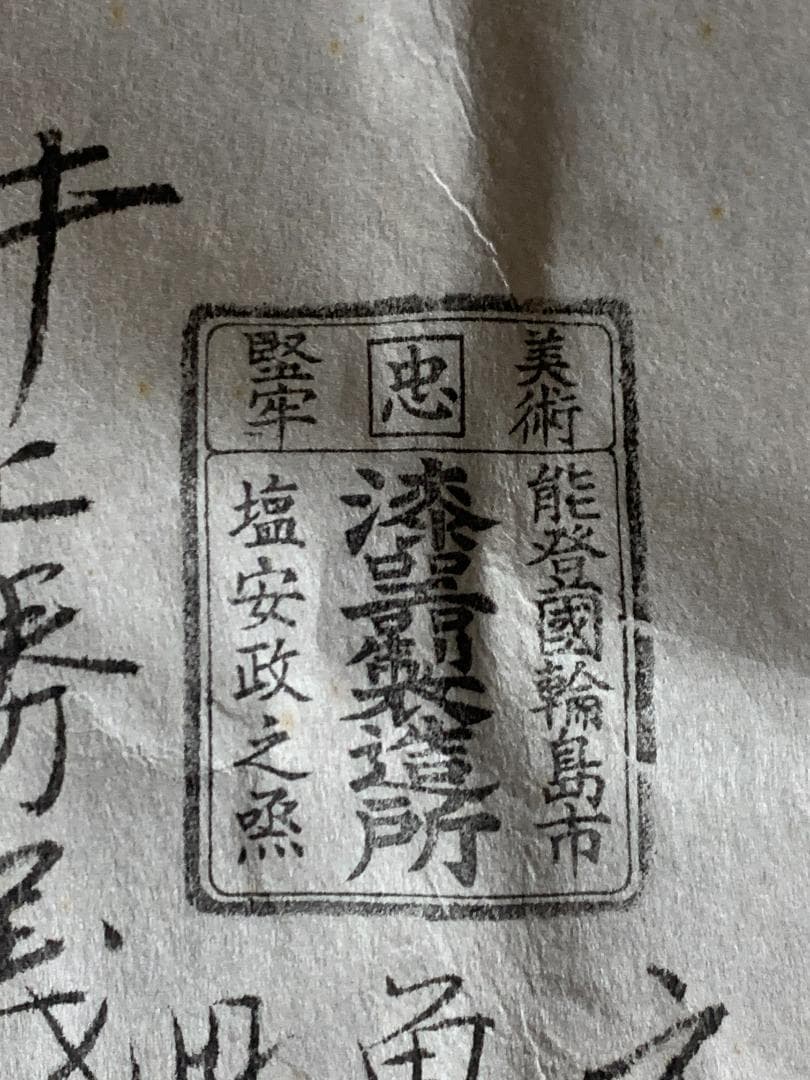 美術
忠
堅牢
能登國輪島市
漆器製造所
塩安政之烝